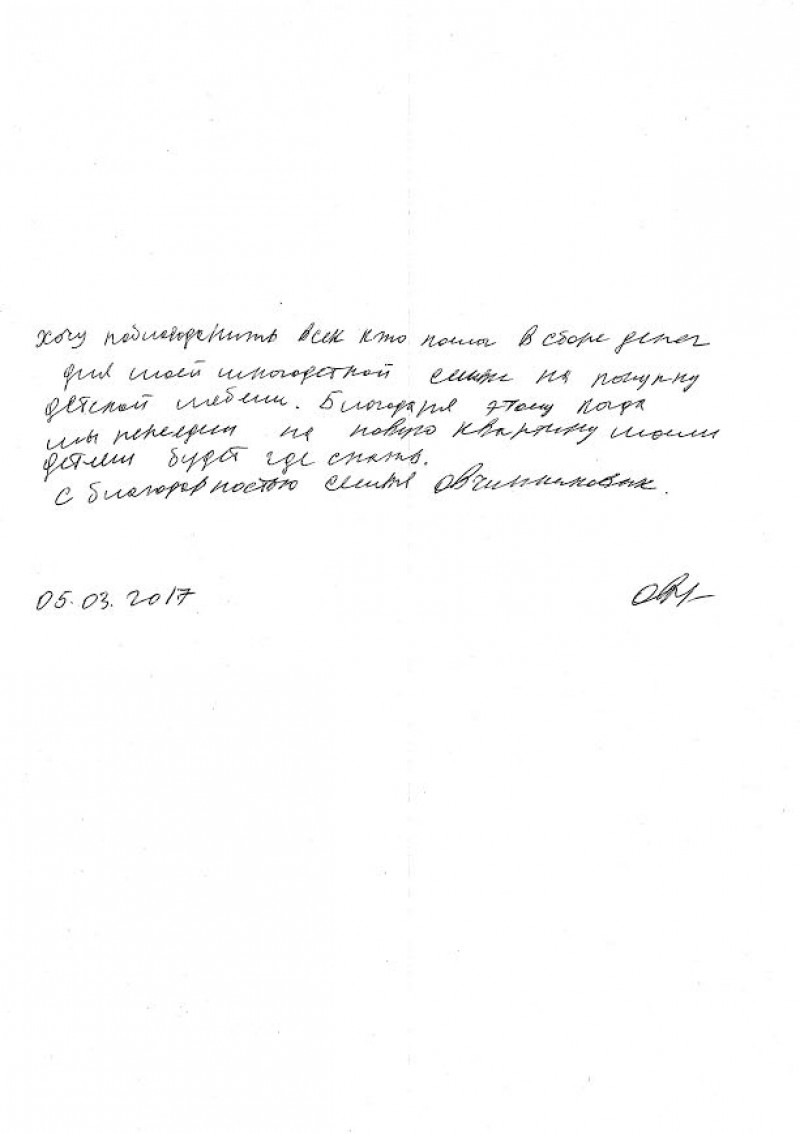 Хочу поблагодарить всех кто помог в сборе денег
для моей многодетной семьи на покупку
детской мебели. Благодаря этому когда
мы переедем на новую квартиру моим
детям будет где спать.
С благодарностью семья Овчинниковых.
05.03.2017